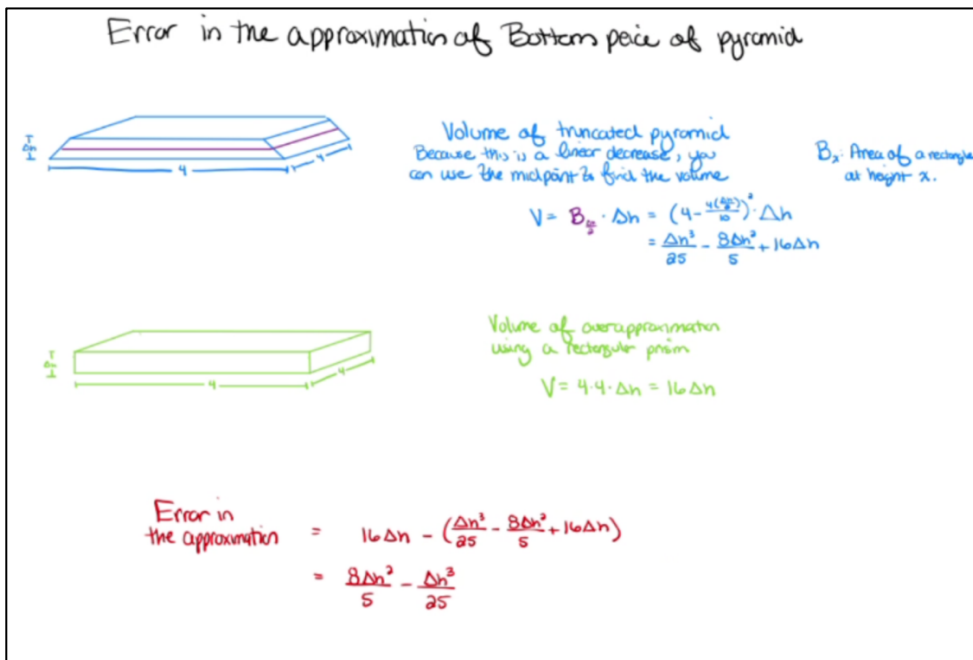 Error in the approximation of Bottom peice of pyramid
Δh
4
4
Volume of truncated pyramid
Because this is a linear decrease, you
can use the midpoint to find the volume
Bₓ: Area of a rectangle
at height x.
V = B_(Δh/2) · Δh = (4 - 4(Δh/2)/10)² · Δh
= Δh³/25 - 8Δh²/5 + 16Δh
Δh
4
4
Volume of overapproximation
using a rectangular prism
V = 4·4·Δh = 16Δh
Error in
the approximation = 16Δh - (Δh³/25 - 8Δh²/5 + 16Δh)
= 8Δh²/5 - Δh³/25